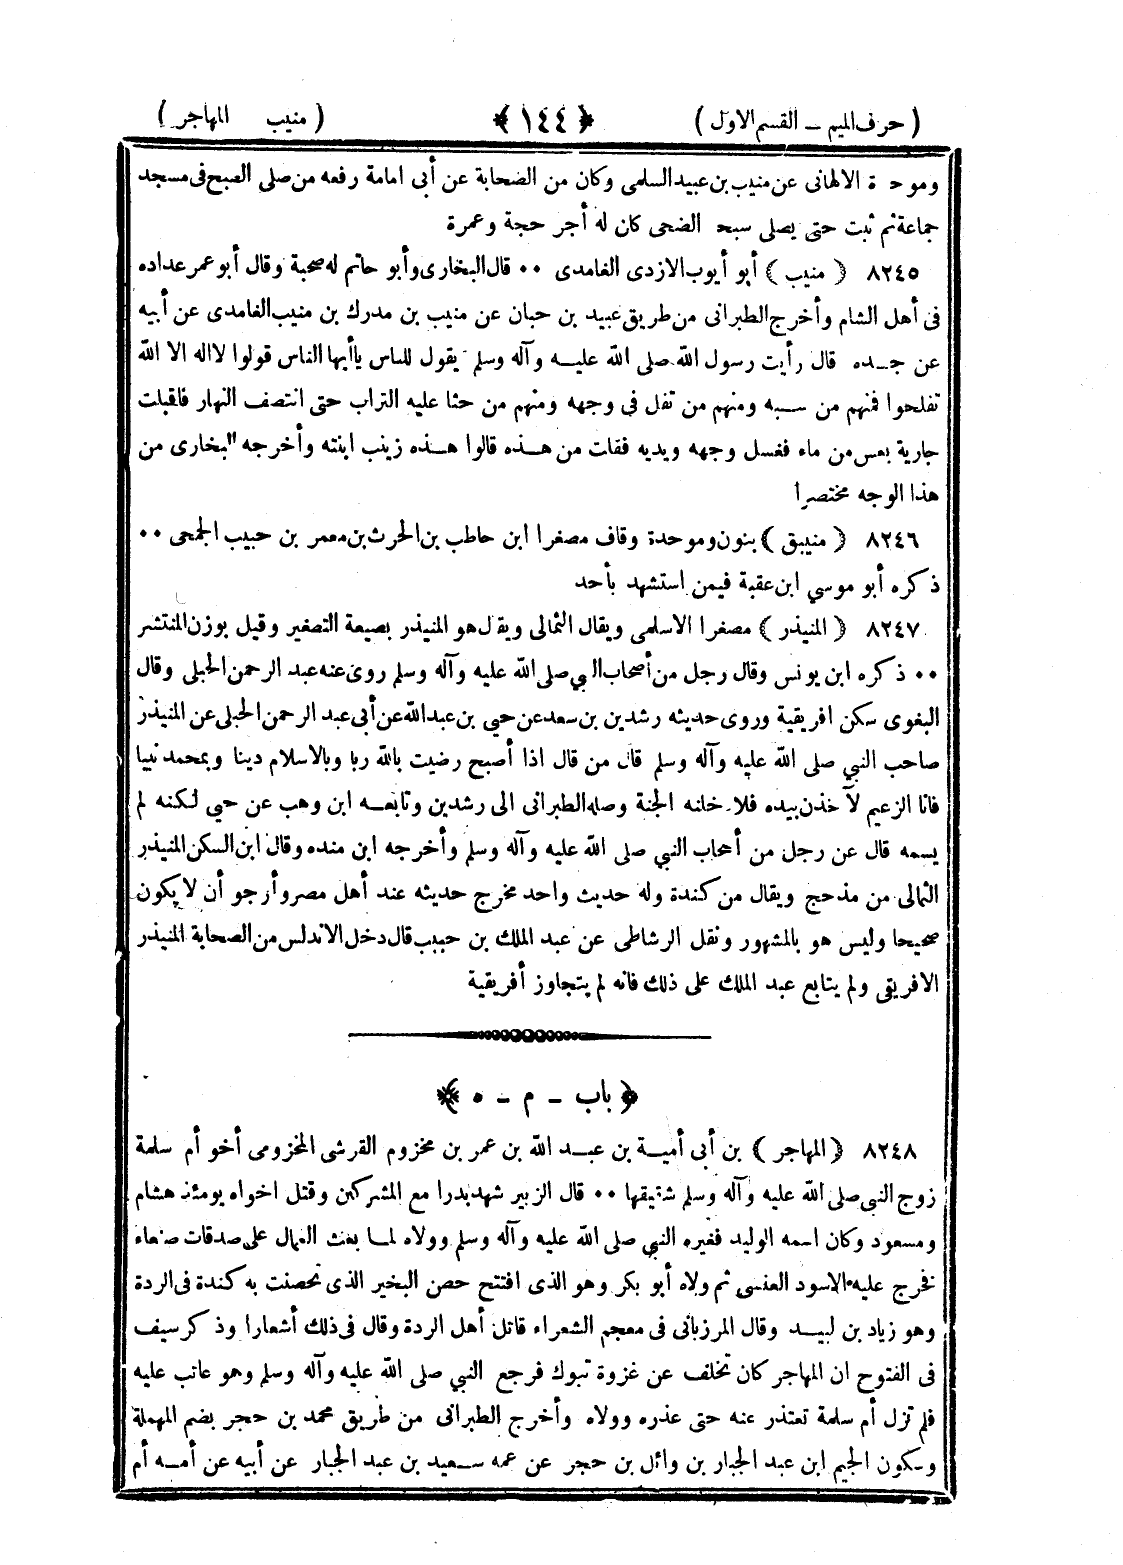 ( حرف الميم – القسم الاول ) ﴿ ١٤٤ ﴾ ( منيب المهاجر )
وموحدة الالهانى عن منيب بن عبيد السلمى وكان من الصحابة عن أبى امامة رفعه من صلى الصبح فى مسجد
جماعة ثم ثبت حتى يصلى سبحة الضحى كان له أجر حجة وعمرة
٨٢٤٥ ( منيب ) أبو أيوب الازدى الغامدى ٠٠ قال البخارى وأبو حاتم له صحبة وقال أبو عمر عداده
فى أهل الشام وأخرج الطبرانى من طريق عبيد بن حبان عن منيب بن مدرك بن منيب الغامدى عن أبيه
عن جـده قال رأيت رسول الله صلى الله عليـه وآله وسلم يقول للناس ياأيها الناس قولوا لااله الا الله
تفلحوا فمنهم من سـبه ومنهم من تفل فى وجهه ومنهم من حثا عليه التراب حتى انتصف النهار فاقبلت
جارية بعس من ماء فغسل وجهه ويديه فقلت من هـذه قالوا هـذه زينب ابنته وأخرجه البخارى من
هذا الوجه مختصرا
٨٢٤٦ ( منيبق ) بنون وموحدة وقاف مصغرا ابن حاطب بن الحرث بن معمر بن حبيب الجمحى ٠٠
ذكره أبو موسي ابن عقبة فيمن استشهد بأحد
٨٢٤٧ ( المنيذر ) مصغرا الاسلمى ويقال الثمالى ويقال هو المنيذر بصيعة التصغير وقيل بوزن المنتشر
٠٠ ذكره ابن يونس وقال رجل من أصحاب النبي صلى الله عليه وآله وسلم روى عنه عبد الرحمن الحبلى وقال
البغوى سكن افريقية وروى حديثه رشدين بن سعد عن حيي بن عبد الله عن أبى عبد الرحمن الحبلى عن المنيذر
صاحب النبي صلى الله عليه وآله وسلم قال من قال اذا أصبح رضيت بالله ربا وبالاسلام دينا وبمحمد نبيا
فانا الزعيم لآخذن بيده فلادخلنه الجنة وصله الطبرانى الى رشدين وتابعـه ابن وهب عن حيي لكنه لم
يسمه قال عن رجل من أصحاب النبي صلى الله عليه وآله وسلم وأخرجه ابن منده وقال ابن السكن المنيذر
الثمالى من مذحج ويقال من كندة وله حديث واحد مخرج حديثه عند أهل مصر وأرجو أن لايكون
صحيحا وليس هو بالمشهور ونقل الرشاطى عن عبد الملك بن حبيب قال دخل الاندلس من الصحابة المنيذر
الافريقى ولم يتابع عبد الملك على ذلك فانه لم يتجاوز أفريقية
﴿ باب – م – ه ﴾
٨٢٤٨ ( المهاجر ) بن أبى أميـة بن عبـد الله بن عمر بن مخزوم القرشى المخزومى أخو أم سلمة
زوج النبي صلى الله عليه وآله وسلم شقيقها ٠٠ قال الزبير شهد بدرا مع المشركين وقتل اخواه يومئذ هشام
ومسعود وكان اسمه الوليد فغيره النبي صلى الله عليه وآله وسلم وولاه لمـا بعث العمال على صدقات صنعاء
فخرج عليه الاسود العنسى ثم ولاه أبو بكر وهو الذى افتتح حصن البخير الذى تحصنت به كندة فى الردة
وهو زياد بن لبيـد وقال المرزبانى فى معجم الشعراء قاتل أهل الردة وقال فى ذلك أشعارا وذكر سيف
فى الفتوح ان المهاجر كان تخلف عن غزوة تبوك فرجع النبي صلى الله عليه وآله وسلم وهو عاتب عليه
فلم تزل أم سلمة تعتذر عنه حتى عذره وولاه وأخرج الطبرانى من طريق محمد بن حجر بضم المهملة
وسكون الجيم ابن عبد الجبار بن وائل بن حجر عن عمه سـعيد بن عبد الجبار عن أبيه عن أمـه أم